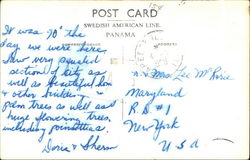 POST CARD
SWEDISH AMERICAN LINE.
PANAMA
It was 90° the
day we were here.
Saw very squalid
section of city as
well as beautiful homes
& other buildings
palm trees as well as
huge flowering trees,
including poinsettias.
Doris & Sherm
Mrs Lee
Maryland
R.D. #1
New York
USA